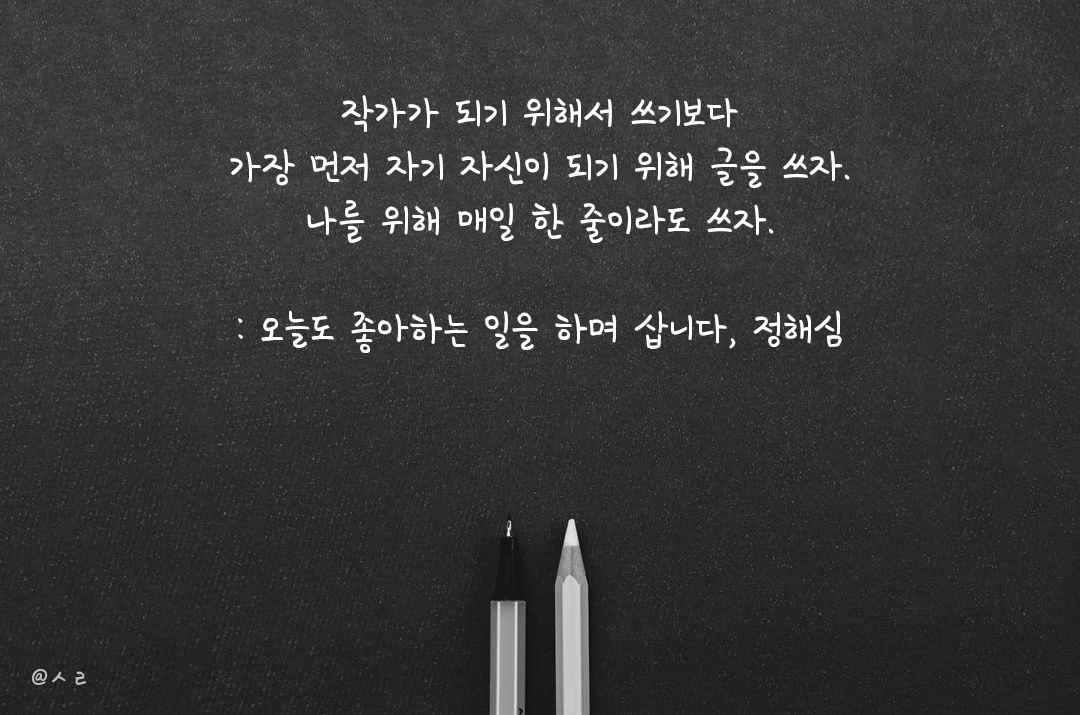 작가가 되기 위해서 쓰기보다
가장 먼저 자기 자신이 되기 위해 글을 쓰자.
나를 위해 매일 한 줄이라도 쓰자.
: 오늘도 좋아하는 일을 하며 삽니다, 정해심
@ㅅㄹ